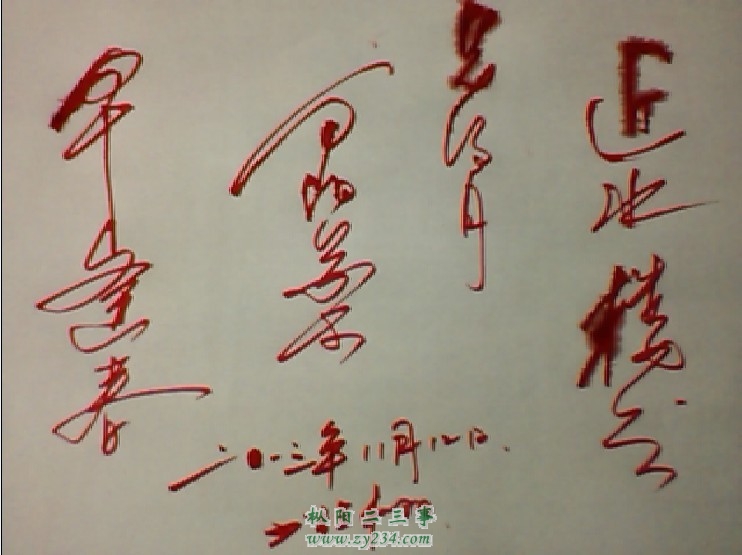 近水楼台
先得月
向阳花木
早逢春
二0一三年11月12日.
枞阳二三事
www.zy234.com